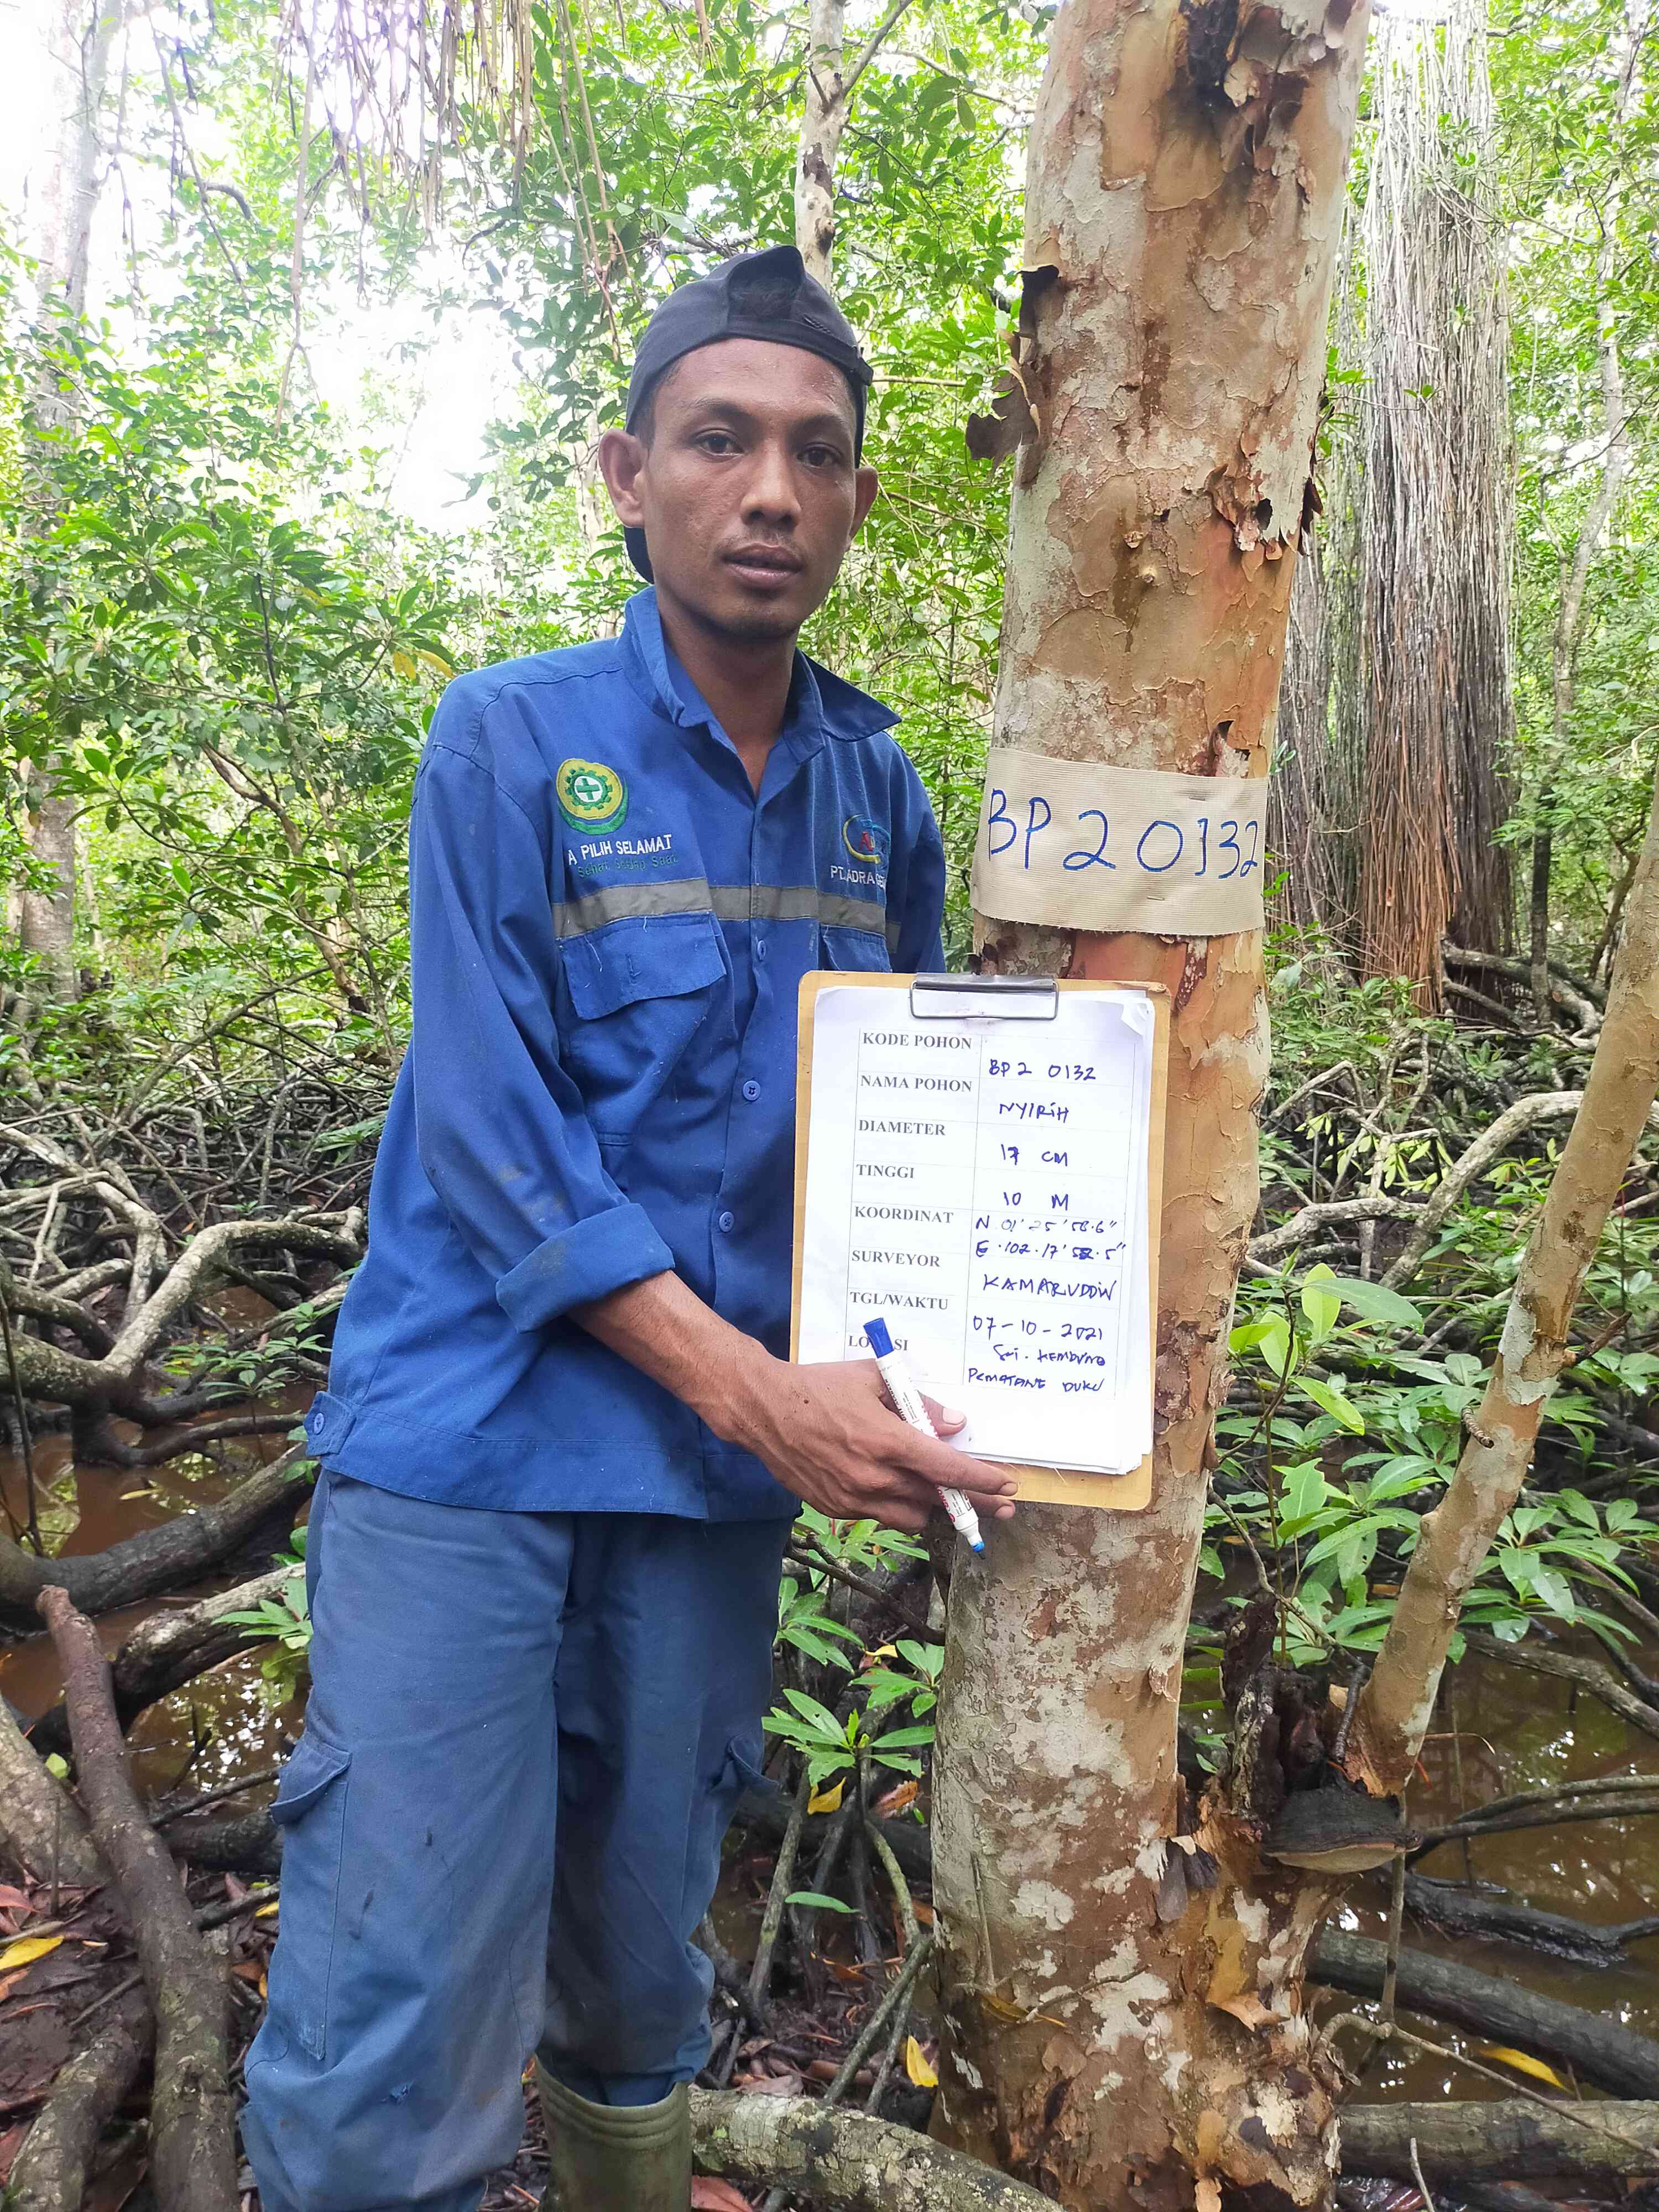 A PILIH SELAMAT
Sehat Sedap Saat
PT. ADRA
BP 2 0132
KODE POHON BP 2 0132
NAMA POHON NYIRIH
DIAMETER 17 CM
TINGGI 10 M
KOORDINAT N.01'25'58.6"
E.102.17'52.5"
SURVEYOR KAMARUDDIN
TGL/WAKTU 07-10-2021
Sei. KEMBUNG
PEMATANG DUKU